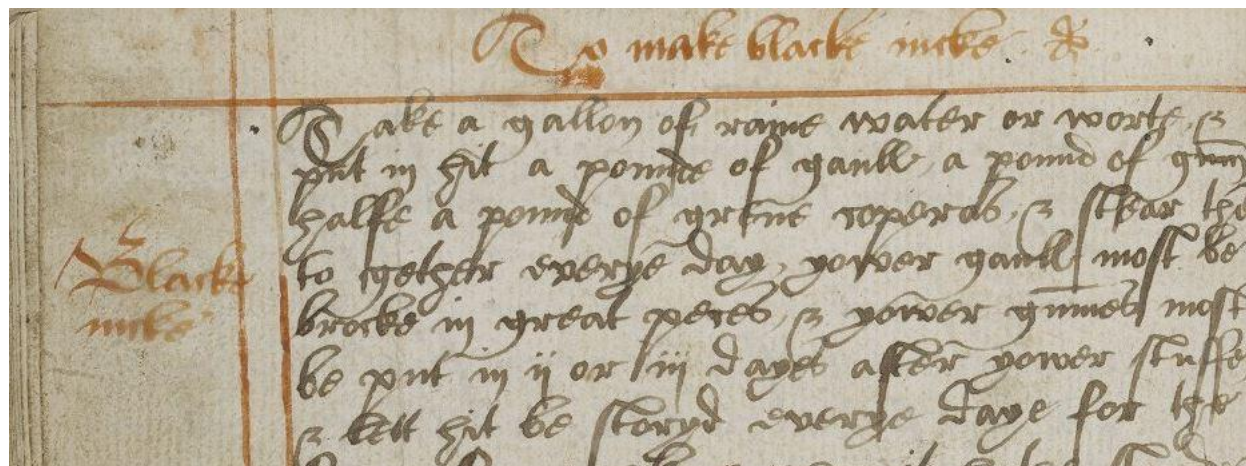 To make blacke incke
Take a gallon of raine water or worte, &
put in hit a pounde of gaull, a pound of gum
halfe a pound of grene coperas, & stear the
to gether everye day, yower gaull most be
Blacke
brocke in great peces, & yower gumes most
incke
be put in ij or iij dayes after yower stuffe,
& lett hit be storyd everye daye for the